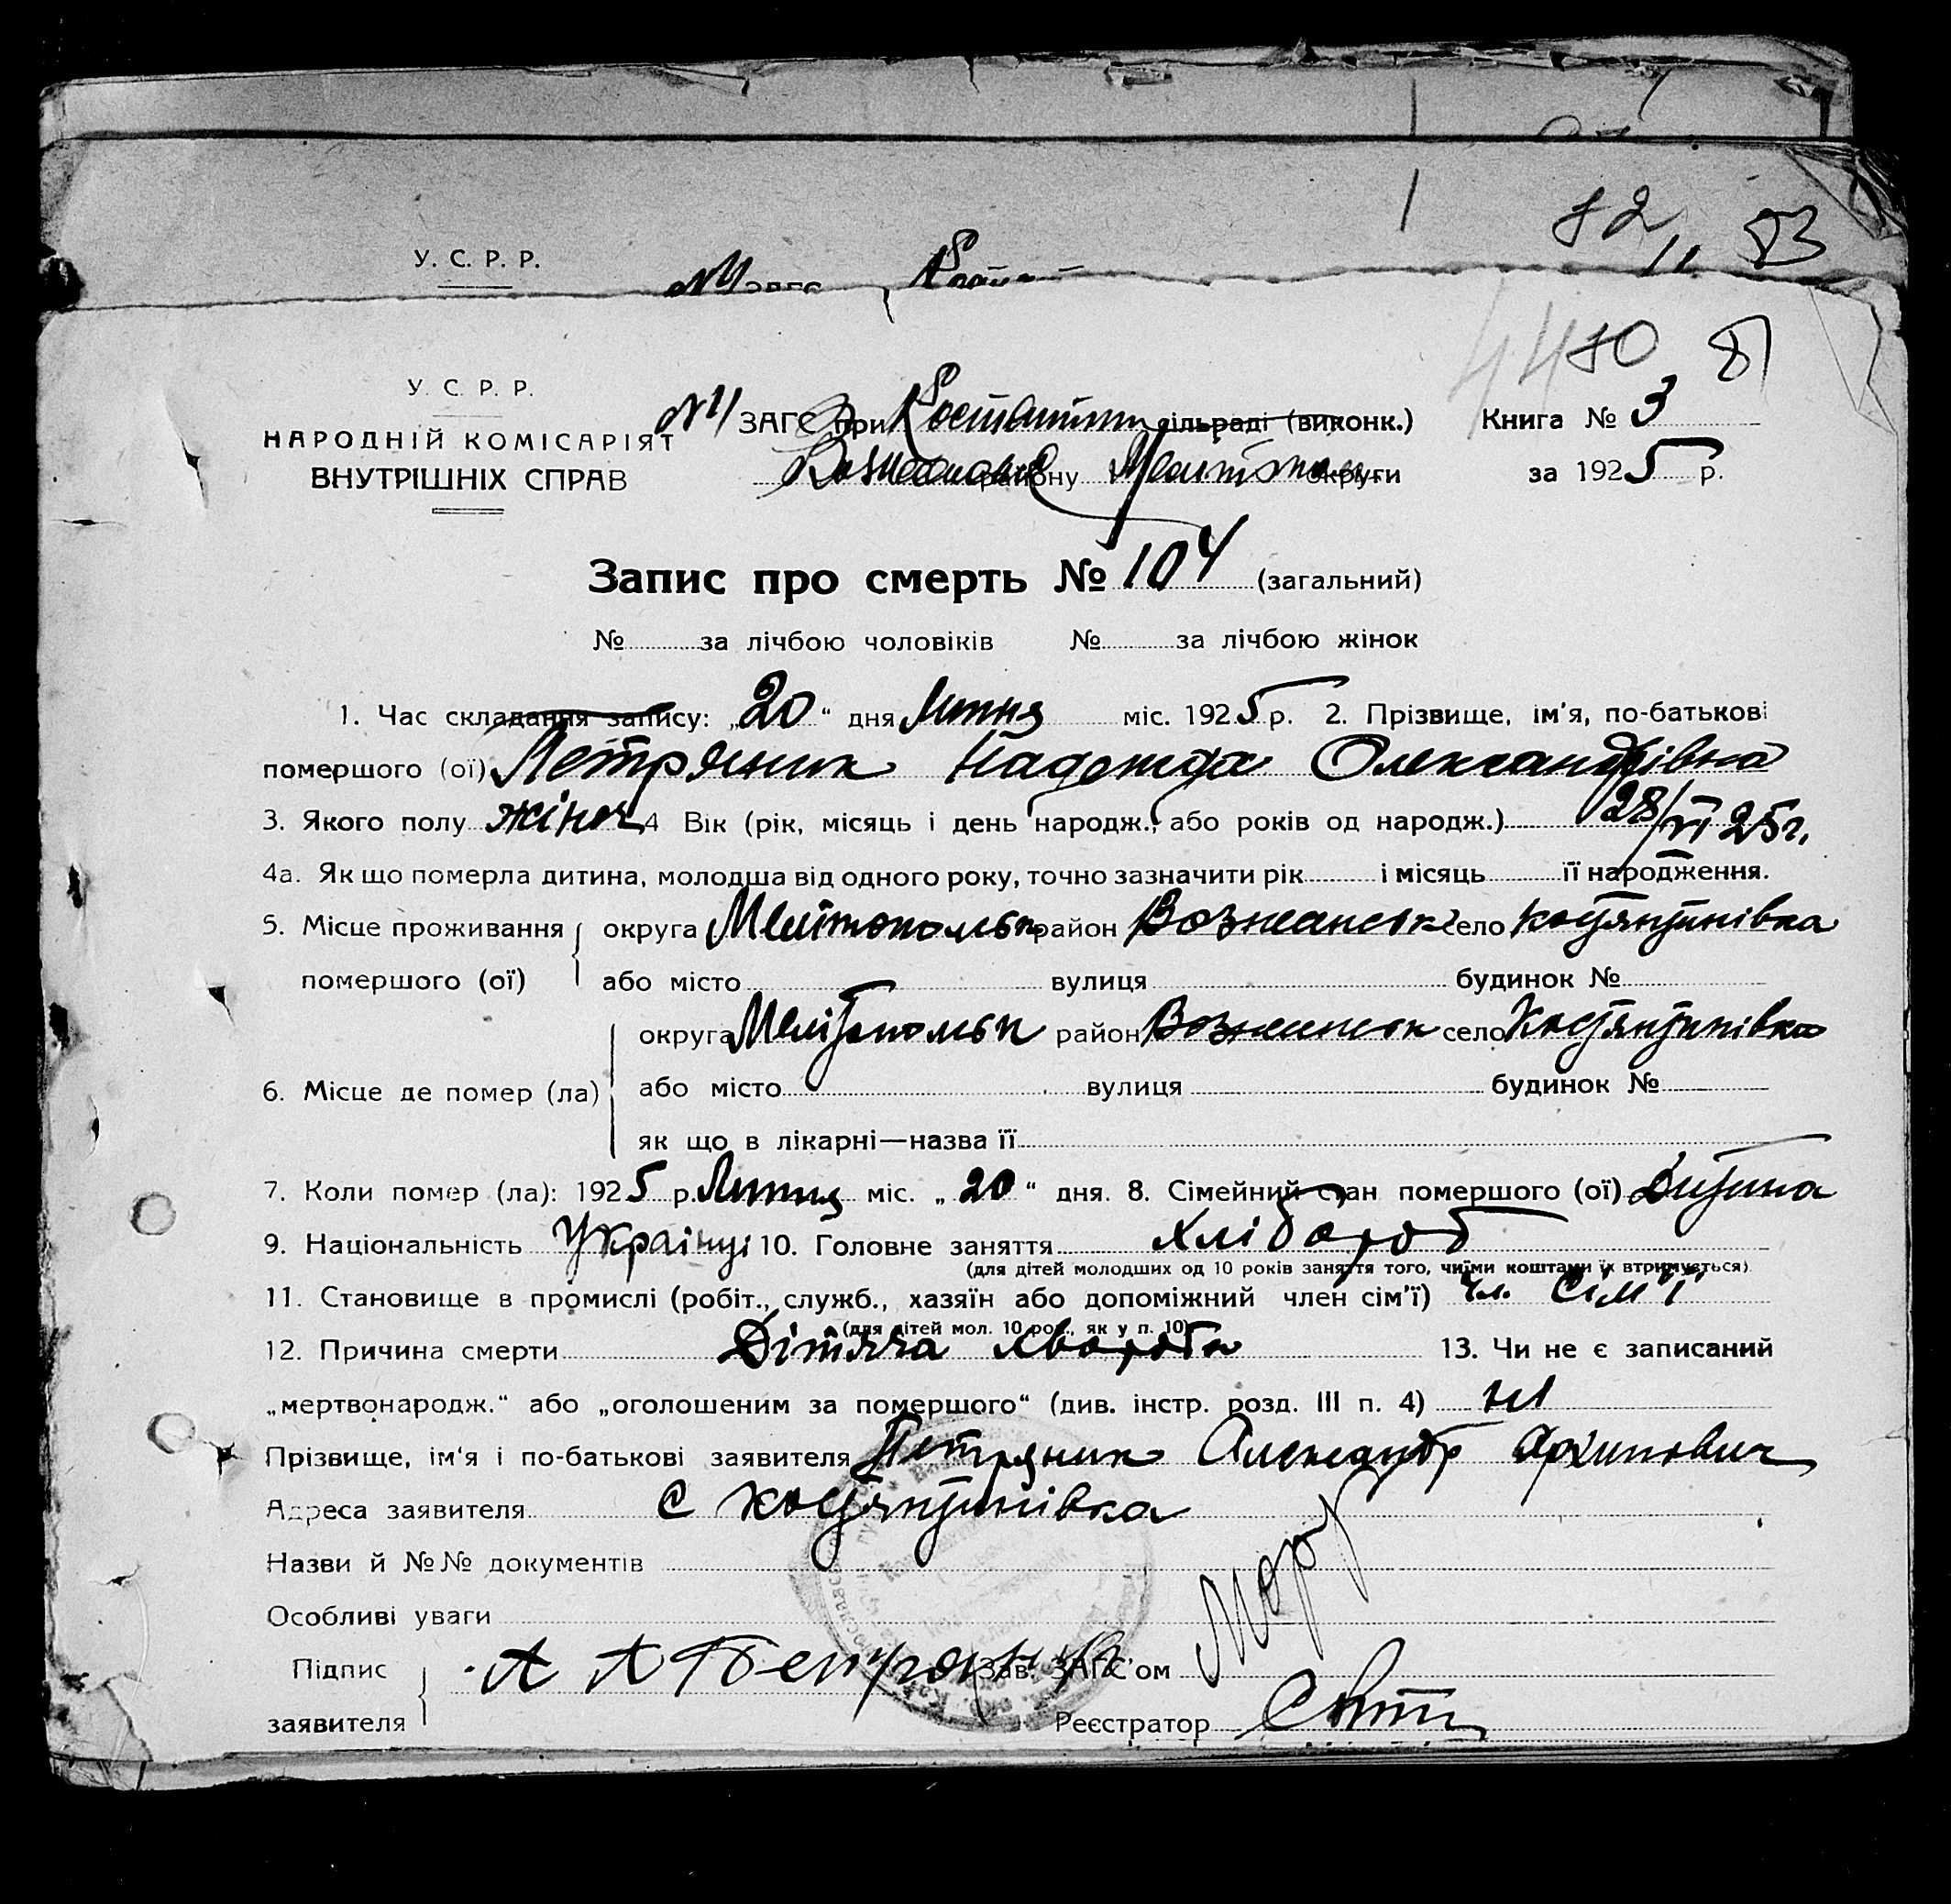 У. С. Р. Р.
72
83
У. С. Р. Р.
НАРОДНІЙ КОМІСАРІЯТ
ВНУТРІШНІХ СПРАВ
44 70 81
ЗАГС при сільраді (виконк.) Книга № 3
району округи за 1925 р.
Запис про смерть № 104 (загальний)
№ за лічбою чоловіків № за лічбою жінок
1. Час складання запису: „20“ дня Липня міс. 1925 р. 2. Прізвище, ім'я, по-батькові
помершого (ої) Петряник Надежда Олександрівна
3. Якого полу жіноч 4 Вік (рік, місяць і день народж., або років од народж.) 28/VI 25г.
4а. Як що померла дитина, молодша від одного року, точно зазначити рік і місяць її народження.
5. Місце проживання округа Мелітопольск район Вознесенськ село Костянтинівка
помершого (ої) або місто вулиця будинок №
округа Мелітопольк район Вознесенськ село Костянтинівка
6. Місце де помер (ла) або місто вулиця будинок №
як що в лікарні—назва її
7. Коли помер (ла): 1925 р. Липня міс. „20“ дня. 8. Сімейний стан помершого (ої) Дитина
9. Національність Українці 10. Головне заняття хлібороб
(для дітей молодших од 10 років заняття того, чиїми коштами їх втримується)
11. Становище в промислі (робіт., служб., хазяїн або допоміжний член сім'ї) чл. сім'ї
(для дітей мол. 10 рок., як у п. 10)
12. Причина смерти Дітяча хвороба 13. Чи не є записаний
„мертвонародж.“ або „оголошеним за помершого“ (див. інстр. розд. III п. 4) ні
Прізвище, ім'я і по-батькові заявителя Петряник Александр Архипович
Адреса заявителя с Костянтинівка
Назви й №№ документів
Особливі уваги
Підпис А А Петряник Зав. ЗАГС'ом
заявителя Реєстратор